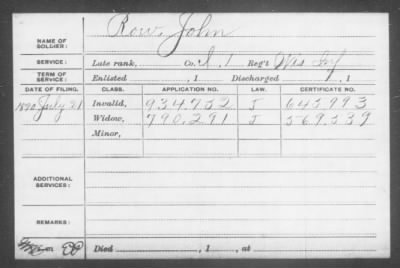 NAME OF SOLDIER: Row, John
SERVICE: Late rank, Co. I. 1 Reg't Wis Inf
TERM OF SERVICE: Enlisted , 1 Discharged , 1
DATE OF FILING. CLASS. APPLICATION NO. LAW. CERTIFICATE NO.
1890 July 21 Invalid, 934.752 J 645.993
Widow, 790.291 J 569.539
Minor,
ADDITIONAL SERVICES:
REMARKS:
Died , 1 , at